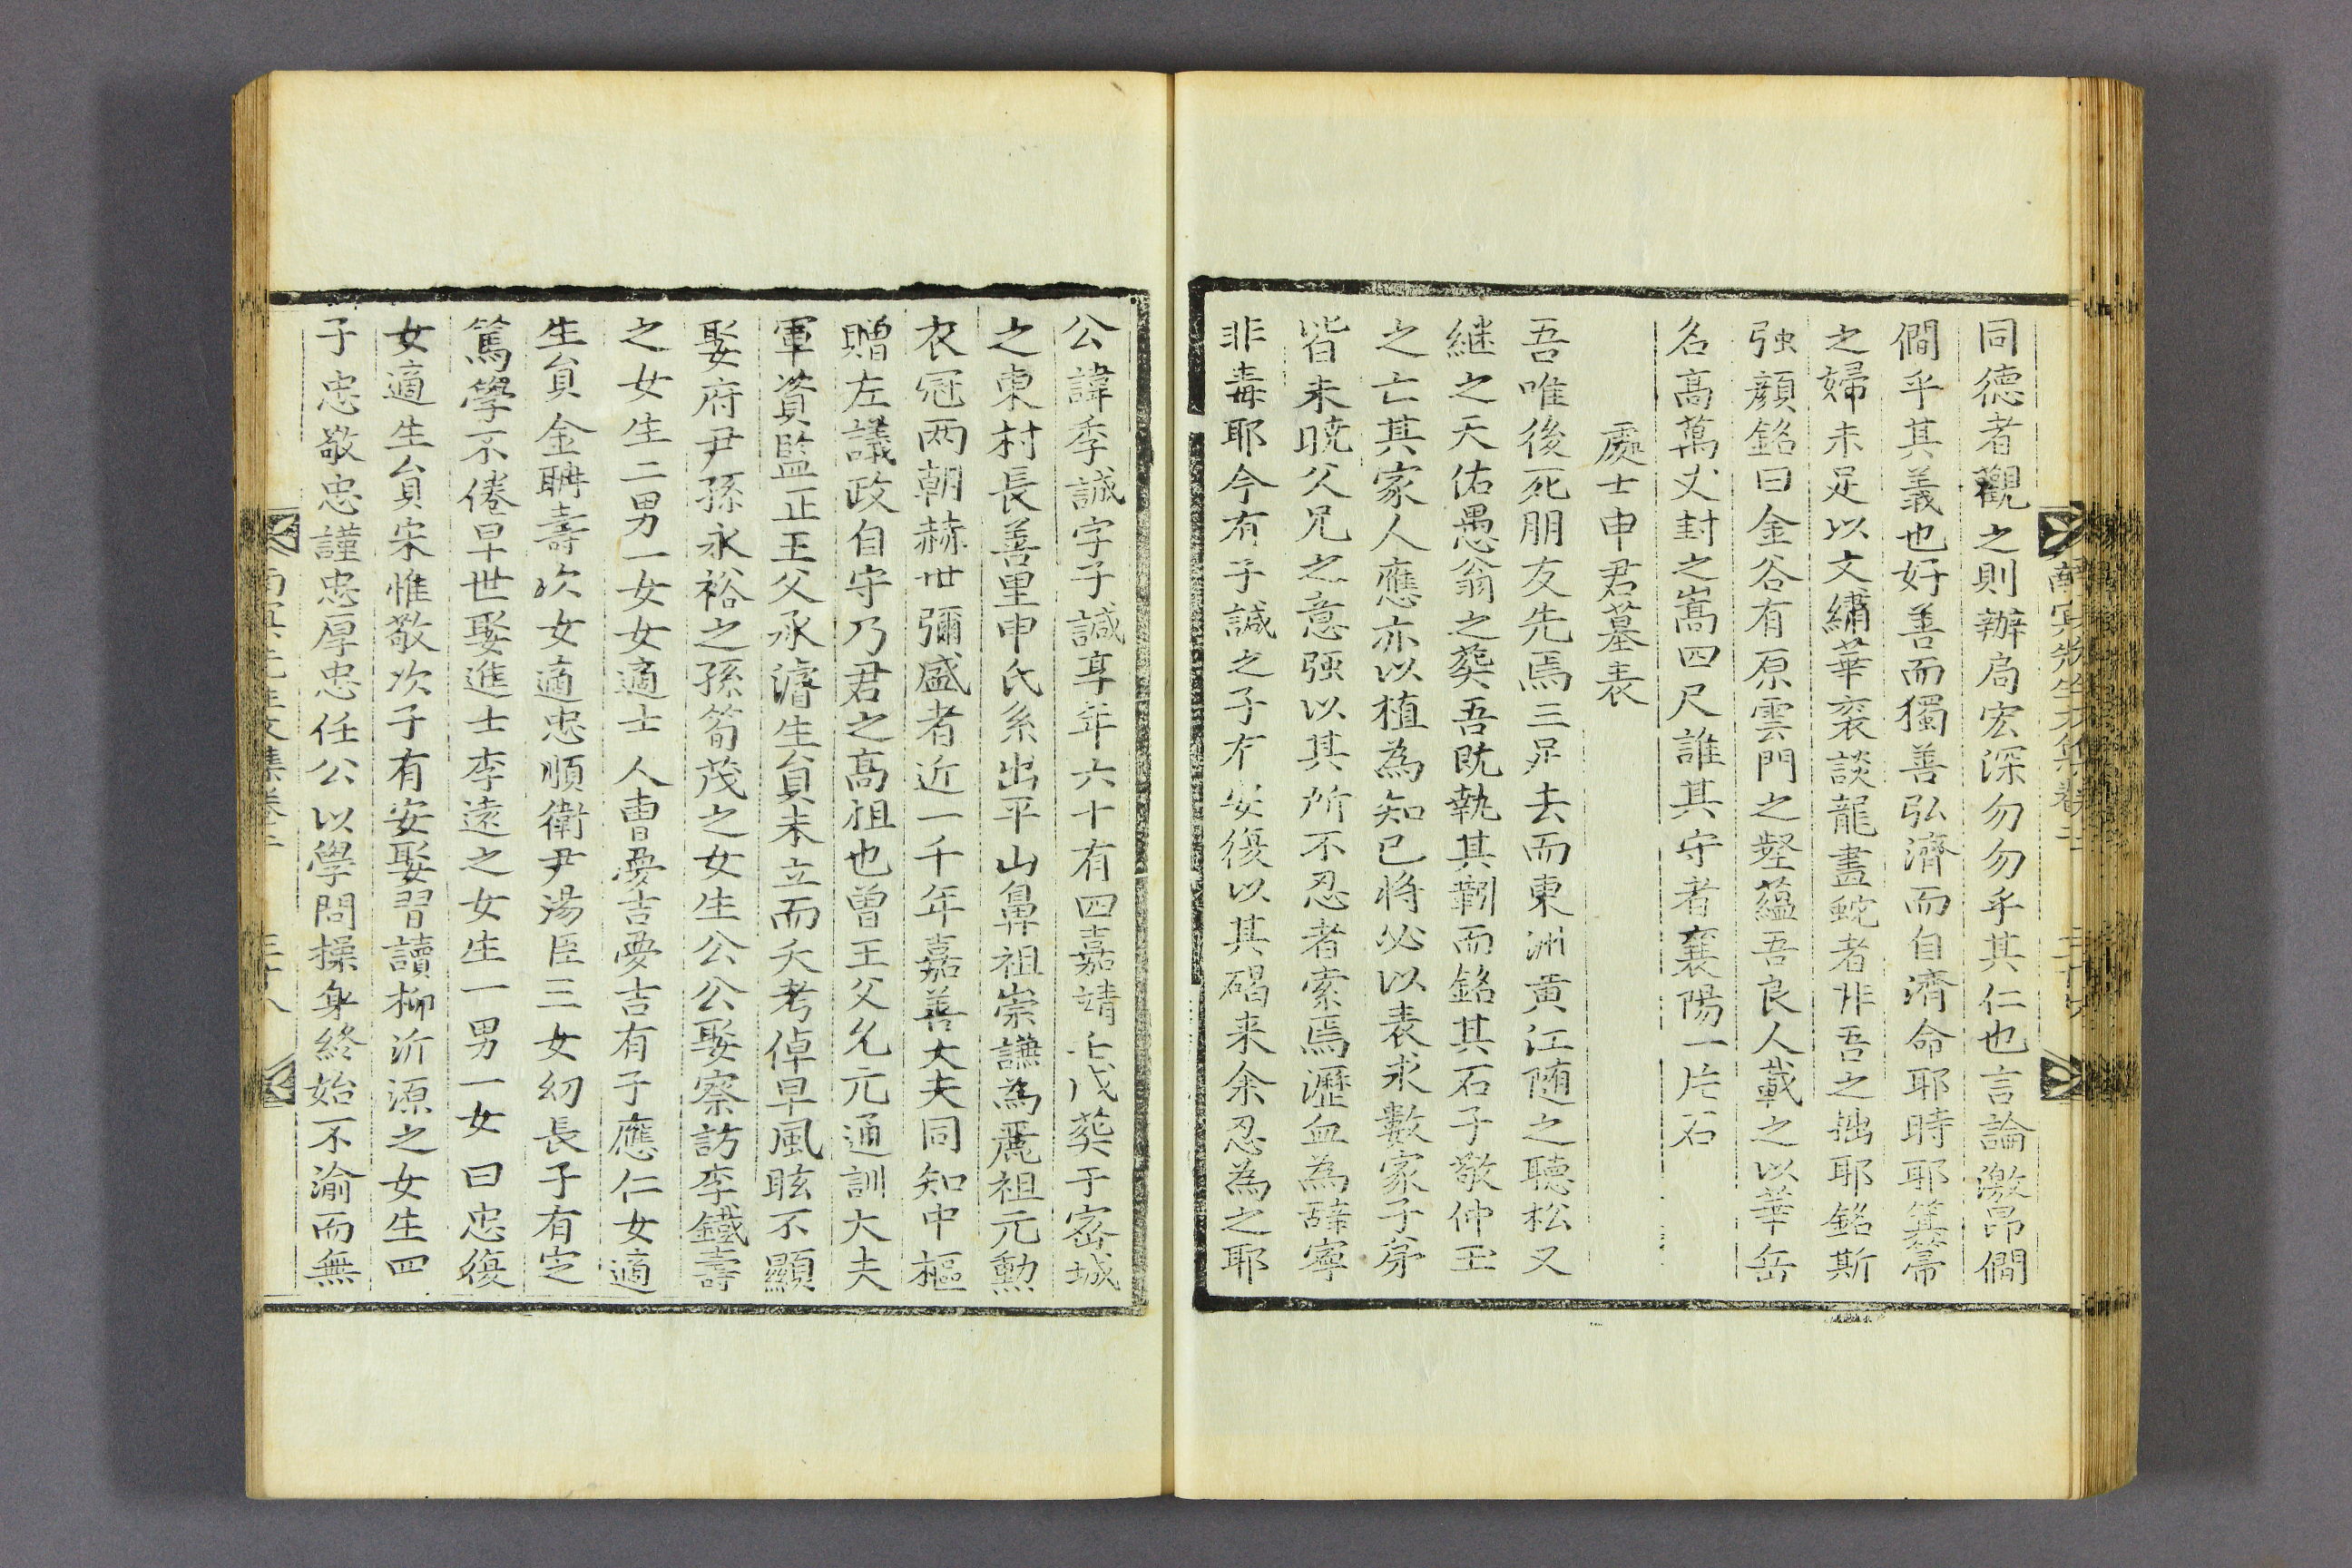 同德者觀之則辦局宏深勿勿乎其仁也言論激昂僩
僩乎其義也好善而獨善弘濟而自濟命耶時耶箕箒
之婦未足以文繡華衮談龍畫蛇者非吾之拙耶銘斯
强顔銘曰金谷有原雲門之壑蘊吾良人載之以華岳
名高萬丈封之嵩四尺誰其守者襄陽一片石
處士申君墓表
吾唯後死朋友先焉三足去而東洲黄江随之聽松又
継之天佑愚翁之葬吾旣執其靷而銘其石子敬仲玉
之亡其家人應亦以植為知已將必以表求數家子弟
皆未曉父兄之意强以其所不忍者索焉瀝血為辭寧
非毒耶今有子諴之子有安復以其碣来余忍為之耶
公諱季誠字子諴享年六十有四嘉靖壬戌葬于密城
之東村長善里申氏系出平山鼻祖崇謙為麗祖元勳
衣冠两朝赫世彌盛者近一千年嘉善大夫同知中樞
贈左議政自守乃君之髙祖也曽王父允元通訓大夫
軍資監正王父承濬生負未立而夭考倬早風眩不顯
娶府尹孫永裕之孫筍茂之女生公公娶察訪李鐵壽
之女生二男一女女適士人曺夢吉夢吉有子應仁女適
生負金聃壽次女適忠順衛尹湯臣三女幼長子有定
篤學不倦早世娶進士李遠之女生一男一女曰忠復
女適生負宋惟敬次子有安娶習讀柳沂源之女生四
子忠敬忠謹忠厚忠任公以學問操身終始不渝而無
南冥先生文集卷二
三十八